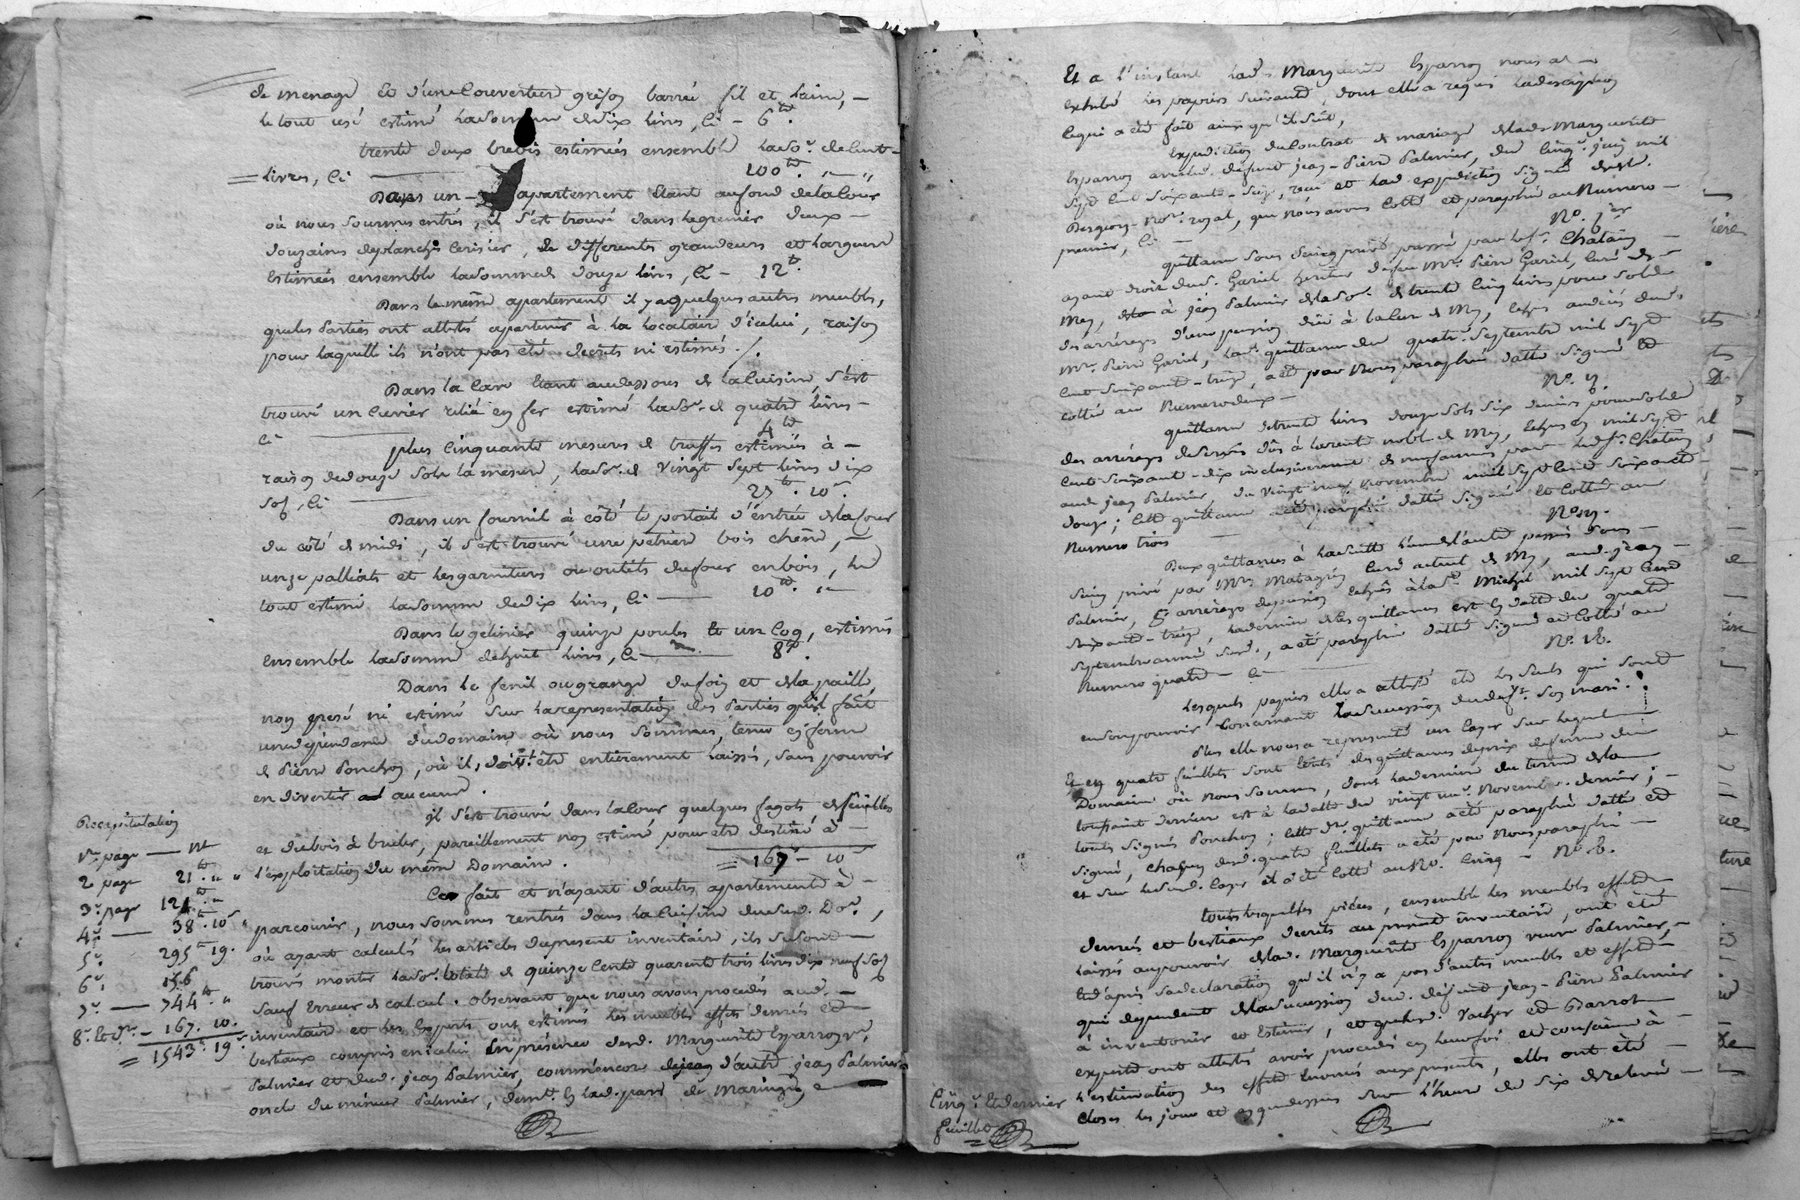 de menage et d'une Couverture grison barrée fil et laine, —
le tout usé estimé la somme de six livres, Ci — 6tt.
trente deux brebis estimées ensemble la so.e de Cent —
livres, Ci ——— 100tt. „—„
Dans un — appartement étant au fond de la Cour
où nous sommes entrés, il s'est trouvé dans le grenier deux —
douzaines de planches Cerisier, de differentes grandeurs et largeurs
Estimées ensemble la somme de douze livres, Ci — 12tt.
Dans le même appartement il y a quelques autres meubles,
que les Parties ont attesté apartenir à la locataire d'icelui, raison
pour laquelle ils n'ont pas été decrits ni estimés./.
Dans la Cave étant au dessous de la Cuisine, s'est
trouvé un Cuvier relié en fer estimé la so.e de quatre livres —
Ci ——— 4tt
plus Cinquante mesures de truffes estimées à —
raison de douze sols la mesure, la so.e de vingt sept livres dix
sols, Ci ——— 27tt. 10s.
Dans un fournil à côté le portail d'entrée de la Cour
du côté de midi, il s'est trouvé une petriere bois chêne, —
unze palliats et les garnitures ou outils du four en bois, le
tout estimé la somme de dix livres, Ci —— 10tt. „—
Dans le gelinier quinze poules et un Coq, estimés
ensemble la somme de huit livres, Ci ——— 8tt.
Dans le fenil ou grange du foin et de la paille
non pesé ni estimé sur la representation des Parties qu'il fait
une dépendance du domaine où nous sommes, tenu en ferme
de Pierre Ponchon, où il doit être entièrement laissé, sans pouvoir
en divertir aucune.
Il s'est trouvé dans la Cour quelques fagots de feuilles
et du bois à bruler, pareillement non estimé pour être destiné à —
l'exploitation du même Domaine. = 167 — 10
Ce fait et n'ayant d'autres appartements à —
parcourir, nous sommes rentrés dans la Cuisine dud. Do.e,
où ayant calculé les articles du present inventaire, ils se sont
trouvés monter la so.e totale de quinze Cents quarante trois livres dix neuf sols
sauf Erreur de calcul. Observant que nous avons procédé aud. —
inventaire et les Experts ont estimé les meubles effets denrés et —
bestiaux compris en icelui en présence de lad. Marguerite Esparron ve
Palmier et dud. jean Palmier, comme encore de jean d'autre jean Palmier
oncle du mineur Palmier, demt. en lad. par.e de Maringes —
Recapitulation
1ere page —— Nt
2e page 21tt. „ „
3e page 121tt. „
4e —— 38tt. 10s „
5e 295tt 19.
6e 156
7e —— 744tt „
8e et d.re — 167. 10.
= 1543tt 19s.
Et à l'instant lad.e Marguerite Esparron nous a —
exhibé les papiers suivants, dont elle a requis la description
ce qui a été fait ainsi qu'il suit,
Expedition du Contrat de mariage de lad.e Marguerite
Esparron avec led. defunt jean-Pierre Palmier, du Cinq.e juin mil
sept Cent soixante-six, reçu et lad. expedition signée dud.
notre. royal, que nous avons Cotté et paraphé au Numero —
premier, Ci — No. 1er
quittance sous seing privé passée par le Sr. Chatain —
ayant droit dud. Gariel heritier de feu Mr. Pierre Gariel, Curé de —
Mey, à jean Palmier de la so.e de trente Cinq livres pour solde
des arrérages d'une pension dûë à la Cure de Mey,
Mr. Pierre Gariel, lad. quittance du quatre Septembre mil sept
Cent soixante-treize, a été par Nous paraphée dattée signée et
Cottée au Numero deux — No. 2.
quittance de trente livres douze sols six deniers pour solde
des arrérages de servis dûs à la rente noble de Mey, échus en mil sept
Cent soixante-dix inclusivement passée par led. Sr. Chatain
aud. jean Palmier, du vingt neuf Novembre mil sept Cent soixante
douze; cette quittance a été paraphée dattée signée et Cottée au
Numero trois — No. 3.
Deux quittances à la suitte l'une de l'autre passées sous —
seing privé par Mre. Matagrin Curé actuel de Mey, aud. jean —
Palmier, d'arrérages de pension échus à la St. Michel mil sept Cent
soixante-treize, la derniere desd. quittances est en datte du quatre
septembre année susd., a été paraphée dattée signée et Cottée au
Numero quatre — Ci — No. 4.
Lesquels papiers elle a attesté être les seuls qui sont
en son pouvoir Concernant la succession dud. defunt son mari.
Plus elle nous a representé un Cayer sur lequel —
et en quatre feuillets sont Écrits des quittances de prix de ferme du —
Domaine où nous sommes, dont la derniere du terme de la —
toussaint dernier est à la datte du vingt un Novembre dernier; —
toutes signées Ponchon; cette d.re quittance a été paraphée dattée et
signée, Chacun desd. quatre feuillets a été par Nous paraphé —
et sur le susd. Cayer il a été Cotté au No. Cinq — No. 5.
toutes lesquelles pieces, ensemble les meubles effets —
denrés et bestiaux decrits au present inventaire, ont été
laissés au pouvoir de lad. Marguerite Esparron veuve Palmier, —
et d'après sa declaration qu'il n'y a pas d'autres meubles et effets —
qui dependent de la succession dud. defunt jean-Pierre Palmier
à inventorier et Estimer, et que lesd. Vacher et Parrot —
experts ont attesté avoir procedé en honneur et conscience à —
l'estimation des effets énoncés aux presents, elles ont été —
closes les jour et an que dessus sur l'heure de six de relevée —
Cinq.e et dernier
feuillet